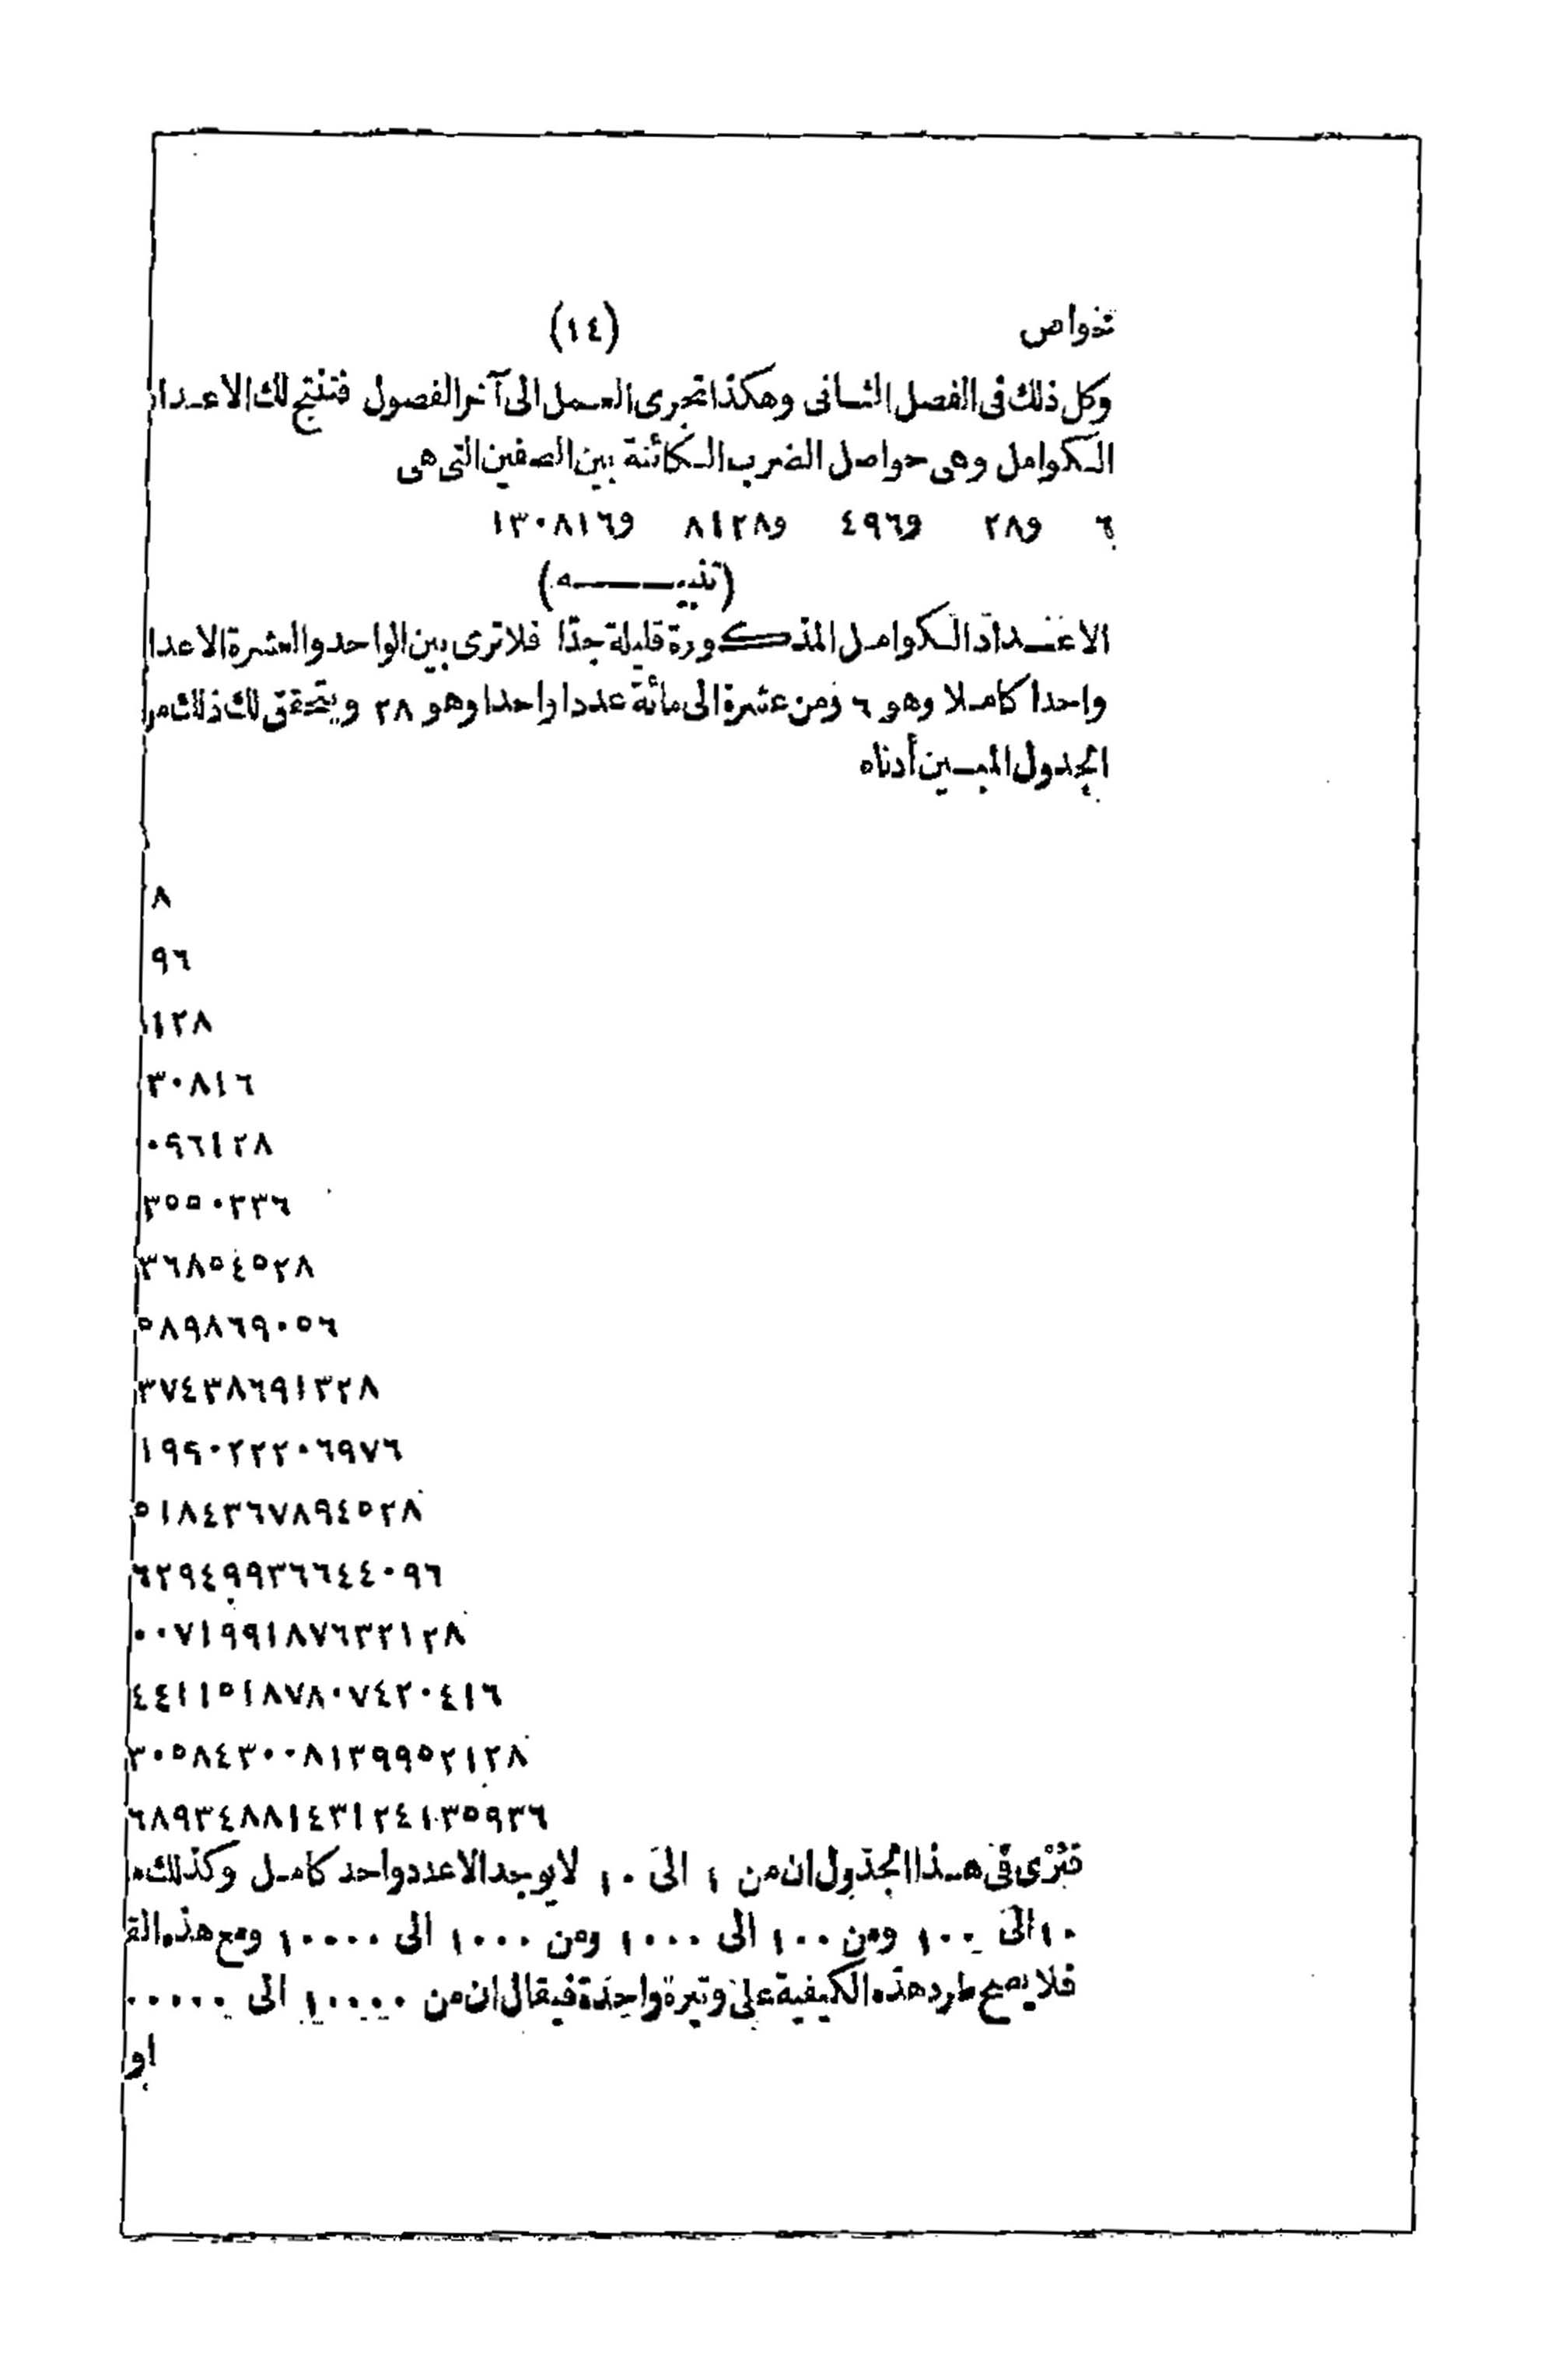 خواص (١٤)
وكل ذلك فى الفصل الثانى وهكذا تجرى العمل الى آخر الفصول فتنتج لك الاعداد
الكوامل وهى حواصل الضرب الكائنة بين الصفين التى هى
٦ و٢٨ و٤٩٦ و٨١٢٨ و١٣٠٨١٦
(تنبيه)
الاعداد الكوامل المذكورة قليلة جدّا فلا ترى بين الواحد والعشرة الا عدا
واحدا كاملا وهو ٦ ومن عشرة الى مائة عددا واحدا وهو ٢٨ ويتحقق لك ذلك من
الجدول المبين أدناه
٨
٩٦
١٢٨
٣٠٨١٦
٠٩٦١٢٨
٣٥٥٠٣٣٦
٣٦٨٥٤٥٢٨
٥٨٩٨٦٩٠٥٦
٣٧٤٣٨٦٩١٣٢٨
١٩٩٠٢٢٢٠٦٩٧٦
٥١٨٤٣٦٧٨٩٤٥٢٨
٦٢٩٤٩٩٣٦٦٤٤٠٩٦
٠٠٧١٩٩١٨٧٦٣٢١٢٨
٤٤١١٥١٨٧٨٠٧٤٢٠٤١٦
٣٠٥٨٤٣٠٠٨١٣٩٩٥٢١٢٨
٦٨٩٣٤٨٨١٤٣١٢٤١٣٥٩٣٦
فترى فى هذا الجدول ان من ١ الى ١٠ لا يوجد الا عدد واحد كامل وكذلك
١٠ الى ١٠٠ ومن ١٠٠ الى ١٠٠٠ ومن ١٠٠٠ الى ١٠٠٠٠ ومع هذه الق
فلا يصح طرد هذه الكيفية على وتيرة واحدة فيقال ان من ١٠٠٠٠ الى ٠٠٠٠٠
او